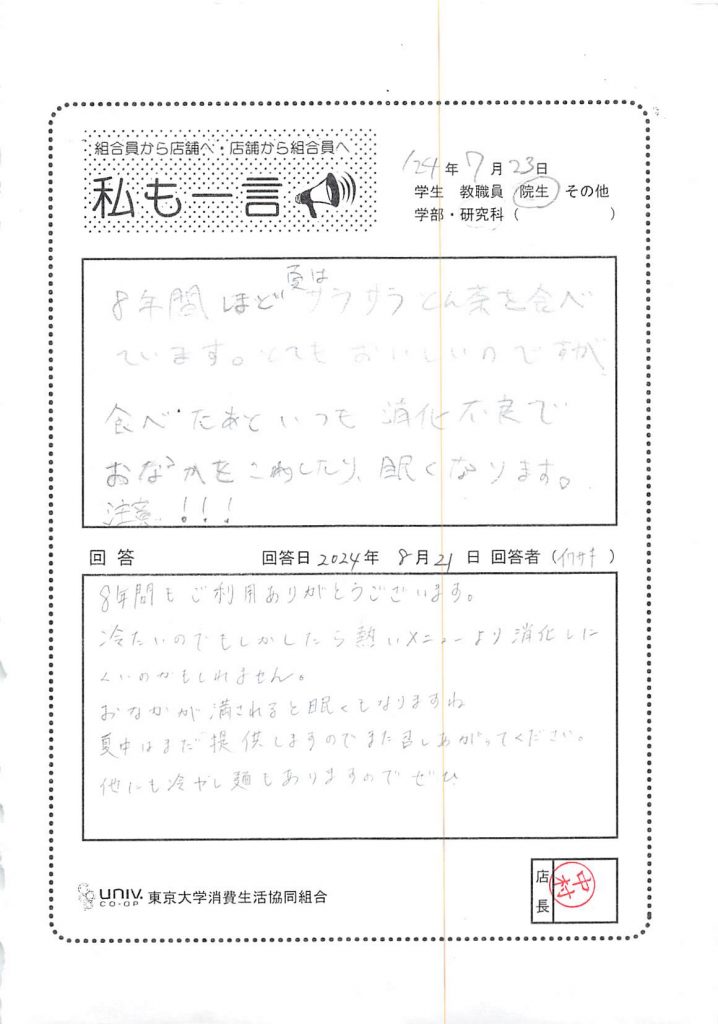 組合員から店舗へ・店舗から組合員へ
私も一言
'24年7月23日
学生 教職員 院生 その他
学部・研究科( )
夏は
8年間ほどサラサラとん菜を食べ
ています。とてもおいしいのですが
食べたあといつも消化不良で
おなかをこわしたり、眠くなります。
注意!!!
回答 回答日2024年 8月21日 回答者(イワサキ)
8年間もご利用ありがとうございます。
冷たいのでもしかしたら熱いメニューより消化しに
くいのかもしれません。
おなかが満されると眠くもなりますね
夏中はまだ提供しますのでまた召しあがってください。
他にも冷やし麺もありますのでぜひ
UNIV. CO-OP 東京大学消費生活協同組合
店長 中村